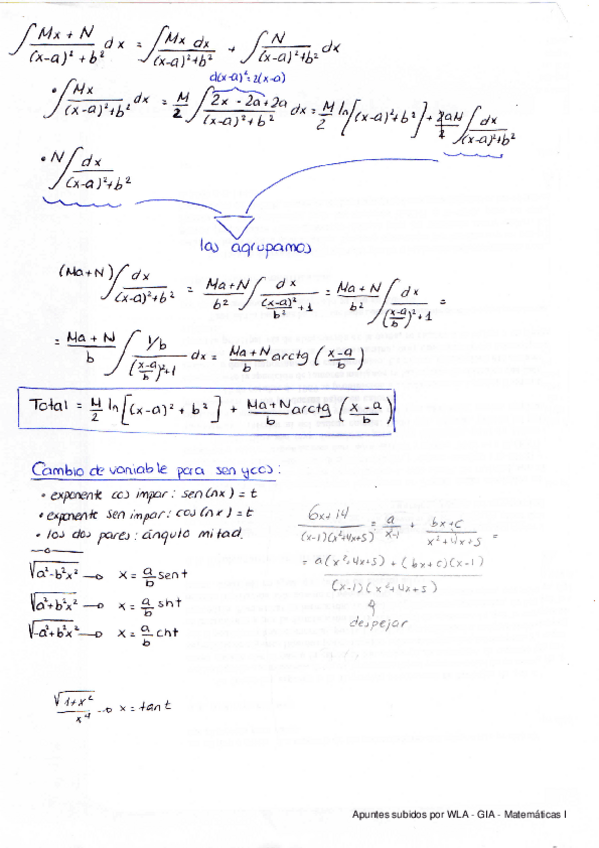 ∫ (Mx + N)/((x-a)² + b²) dx = ∫ (Mx dx)/((x-a)²+b²) + ∫ N/((x-a)²+b²) dx
d(x-a)²=2(x-a)
• ∫ Mx/((x-a)²+b²) dx = M/2 ∫ (2x - 2a + 2a)/((x-a)² + b²) dx = M/2 ln[(x-a)²+b²] + 2aM/2 ∫ dx/((x-a)²+b²)
• N ∫ dx/((x-a)²+b²)
las agrupamos
(Ma+N) ∫ dx/((x-a)²+b²) = (Ma+N)/b² ∫ dx/((x-a)²/b² + 1) = (Ma+N)/b² ∫ dx/(((x-a)/b)²+1) =
= (Ma + N)/b ∫ (1/b)/(((x-a)/b)²+1) dx = (Ma+N)/b arctg ((x-a)/b)
Total = M/2 ln[(x-a)² + b²] + (Ma+N)/b arctg ((x-a)/b)
Cambio de variable para sen y cos:
• exponente cos impar: sen(nx) = t
• exponente sen impar: cos(nx) = t
• los dos pares: ángulo mitad.
√(a²-b²x²) → x = a/b sent
√(a²+b²x²) → x = a/b sht
√(-a²+b²x²) → x = a/b cht
√(1+x²)/x⁴ → x = tan t
(6x+14)/((x-1)(x²+4x+5)) = a/(x-1) + (bx+c)/(x²+4x+5) =
= (a(x²+4x+5) + (bx+c)(x-1))/((x-1)(x²+4x+5))
despejar
Apuntes subidos por WLA - GIA - Matemáticas I